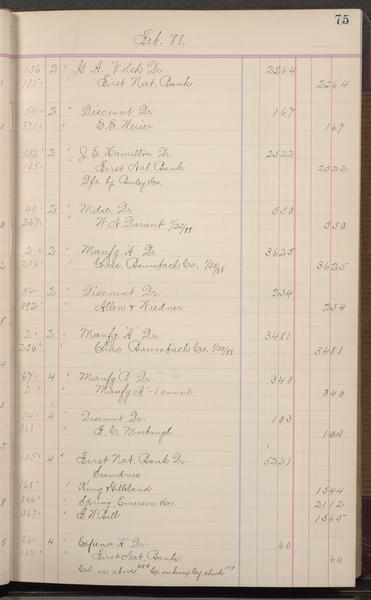 75
Feb. '88.
156 2 " G. A. Volck Dr. 2264
105 " First Nat. Bank 2264
54 2 " Discount Dr 167
371 " 167
132 2 " J. E. Hamilton Dr. 2522
105 " First Nat. Bank 2522
Dft. by Co.
49 2 " Mdse. Dr. 550
267 " W. A. Durant 1/23/88 550
2 2 " Manfg "K" Dr 3625
256 " Chas. Baumbach Co. 1/30/88 3625
54 2 " Discount Dr. 254
392 " Allen & Wiedner 254
2 2 " Manfg. "K" Dr. 3481
256 " Chas Baumbach Co. 1/30/88 3481
67 4 " Manfg Dr 340
2 " Manfg A - 1 340
54 4 " Discount Dr. 103
368 " 103
105 4 " First Nat. Bank Dr 5221
Sundries
168 " King & Hilleland 1544
366 " Spring, Emerson & Co. 2112
367 " G. W. Bull 1565
26 4 " Expense "K" Dr. 60
105 " First Nat. Bank 60
Col. on above